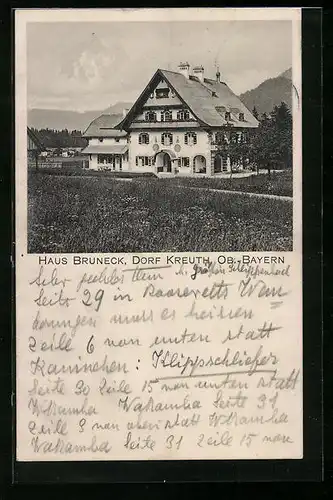 HAUS BRUNECK, DORF KREUTH, OB.-BAYERN
Sehr geehrter Herr u. Gräfin Schlippenbach
Seite 29 in Roosevelts Wan
derungen muss es heissen
Zeile 6 von unten statt
Kaninchen: Klippschliefer
Seite 30 Zeile 15 von unten statt
Wkamba Wakamba Seite 31
Zeile 3 von oben statt Wkamba
Wakamba Seite 31 Zeile 15 von